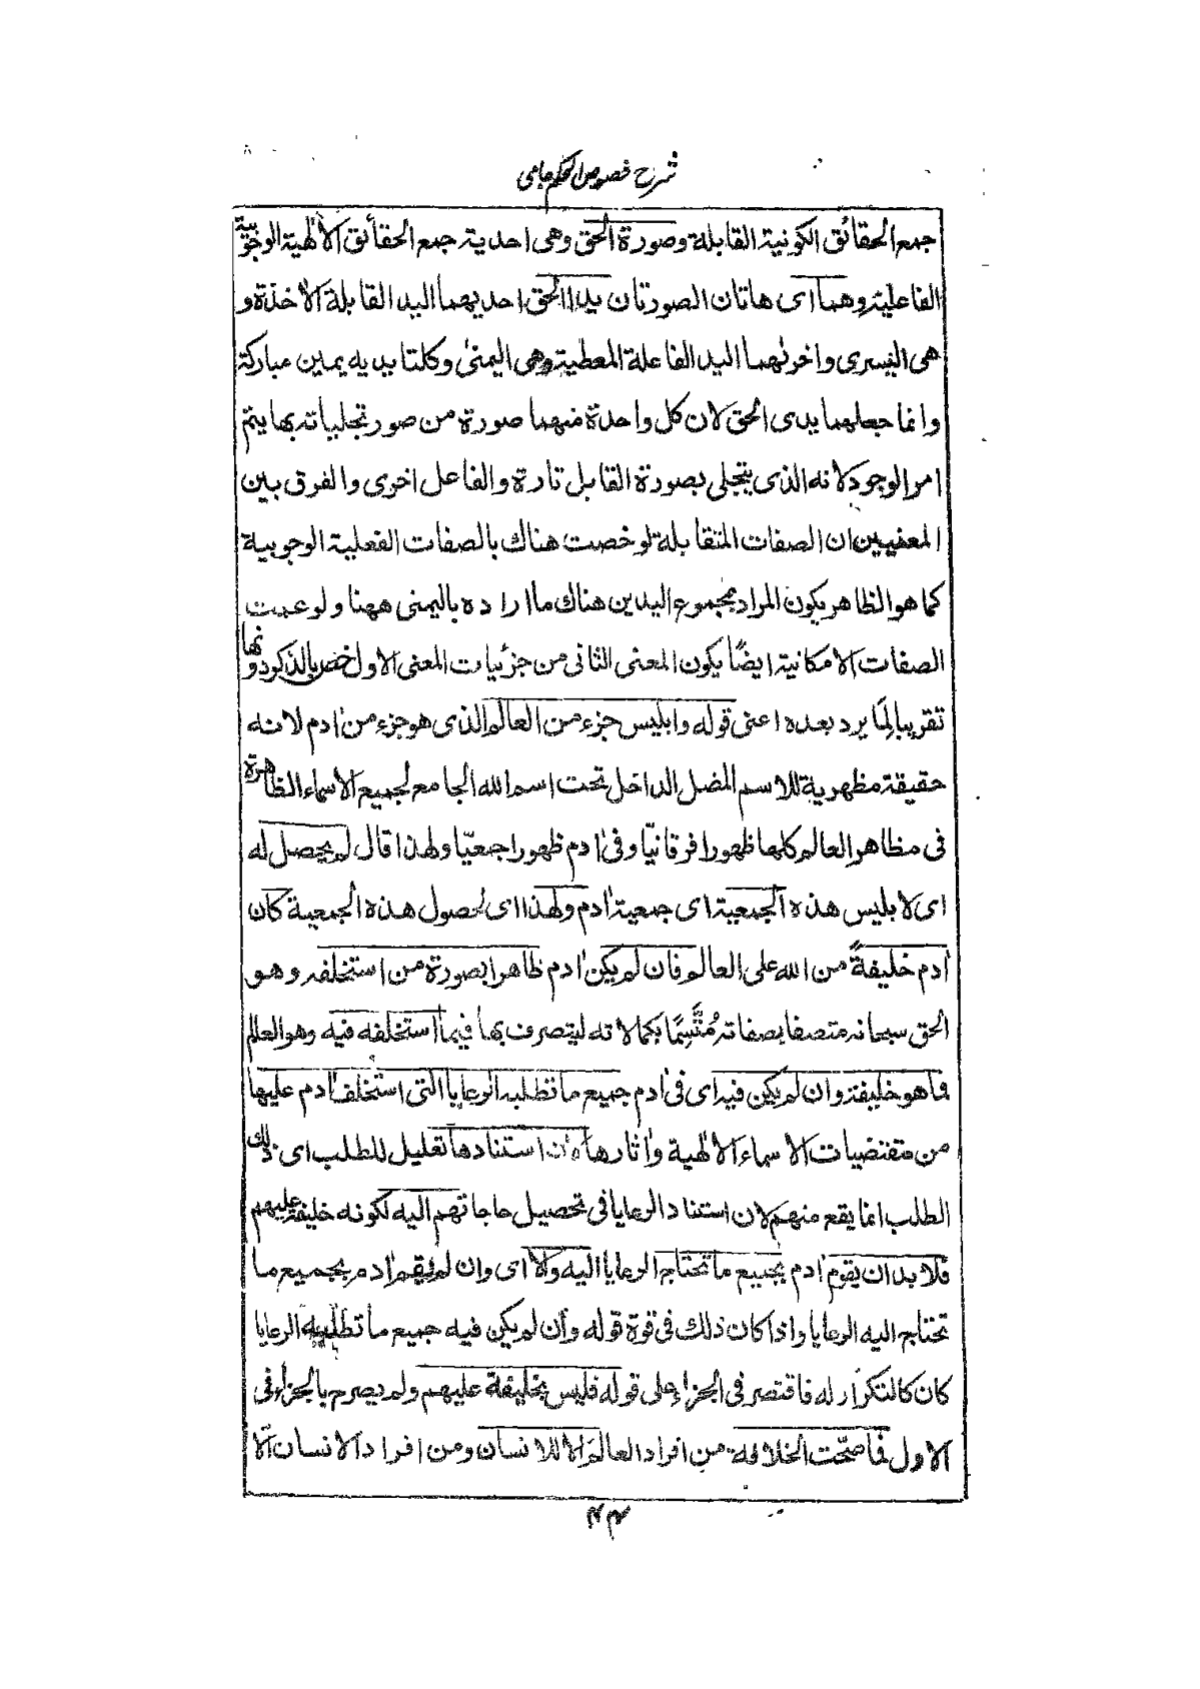 شرح فصوص الحكم جامى
جمع الحقائق الكونية القابلة وصورة الحق وهى احدية جمع الحقائق الالٰهية الوجوبية
الفاعلية وهما اى هاتان الصورتان يدا الحق احديهما اليد القابلة الاخذة و
هى اليسرى واخرٰهما اليد الفاعلة المعطية وهى اليمنىٰ وكلتا يديه يمين مباركة
وانما جعلهما يدى الحق لان كل واحدة منهما صورة من صور تجلياته بها يتم
امر الوجود لانه الذى يتجلى بصورة القابل تارة والفاعل اخرى والفرق بين
المعنيين ان الصفات المتقابلة لو خصت هناك بالصفات الفعلية الوجوبية
كما هو الظاهر يكون المراد بمجموع اليدين هناك ما اراده باليمنى ههنا ولو عمت
الصفات الامكانية ايضًا يكون المعنى الثانى من جزئيات المعنى الاول خص بالذكر دونها
تقريبا لِمَا يرد بعده اعنى قوله وابليس جزء من العالم الذى هو جزء من اٰدم لانه
حقيقة مظهرية للاسم المضل الداخل تحت اسم الله الجامع لجميع الاسماء الظاهرة
فى مظاهر العالم كلها ظهورا فرقانيّا وفى اٰدم ظهورا جمعيّا ولهذا قال لم يحصل له
اى لابليس هذه الجمعية اى جمعية اٰدم ولهذا اى لحصول هذه الجمعية كان
اٰدم خليفةً من الله على العالم فان لم يكن اٰدم ظاهرا بصورة من استخلفه وهو
الحق سبحانه متصفا بصفاته مُتَّسِمًا بكمالاته ليتصرف بها فيما استخلفه فيه وهو العالم
فما هو خليفة وان لم يكن فيه اى فى اٰدم جميع ما تطلبه الرعايا التى استخلف اٰدم عليها
من مقتضيات الاسماء الالٰهية واٰثارها لان استنادها تعليل للطلب اى ذلك
الطلب انما يقع منهم لان استناد الرعايا فى تحصيل حاجاتهم اليه لكونه خليفة عليهم
فلا بد ان يقوم اٰدم بجميع ما تحتاج الرعايا اليه والا اى وان لم يقم اٰدم بجميع ما
تحتاج اليه الرعايا واذا كان ذلك فى قوة قوله وان لم يكن فيه جميع ما تطلبه الرعايا
كان كالتكرار له فاقتصر فى الجزاء على قوله فليس بخليفة عليهم ولم يصرح بالجزاء فى
الاول فما صحّت الخلافة من افراد العالم الا للانسان ومن افراد الانسان الّا